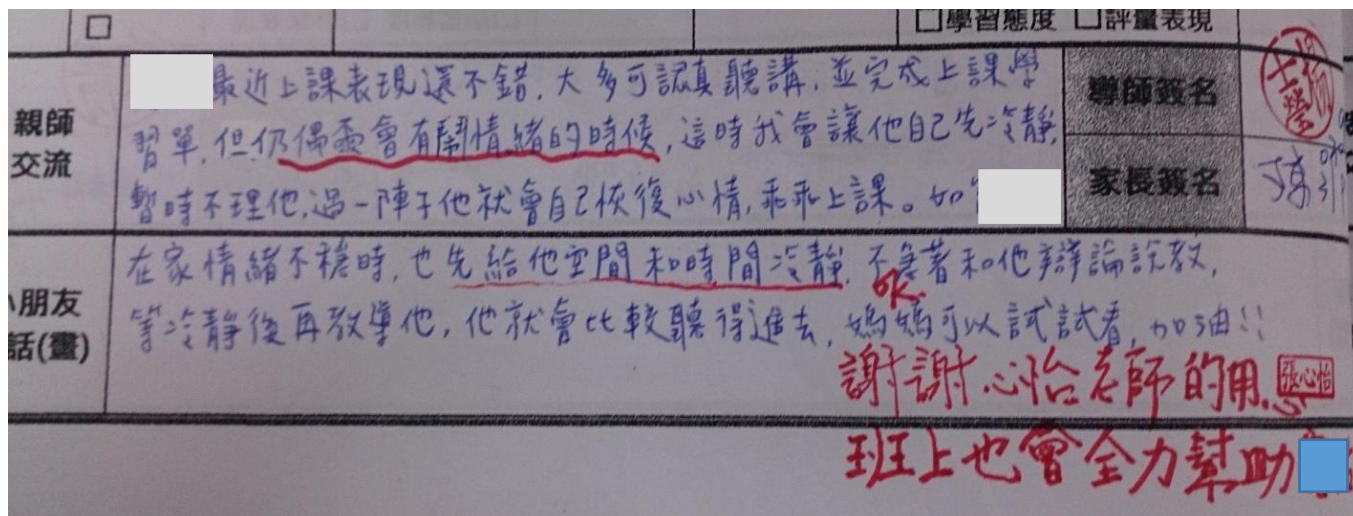 □
□學習態度 □評量表現
親師
交流
最近上課表現還不錯,大多可認真聽講,並完成上課學
習單,但仍偶爾會有鬧情緒的時候,這時我會讓他自己先冷靜,
暫時不理他,過一陣子他就會自己恢復心情,乖乖上課。如
導師簽名
家長簽名
朋友
話(畫)
在家情緒不穩時,也先給他空間和時間冷靜,不急著和他辯論說教,
OK.
等冷靜後再教導他,他就會比較聽得進去,媽媽可以試試看,加油!!
謝謝心怡老師的用心
張心怡
班上也會全力幫助